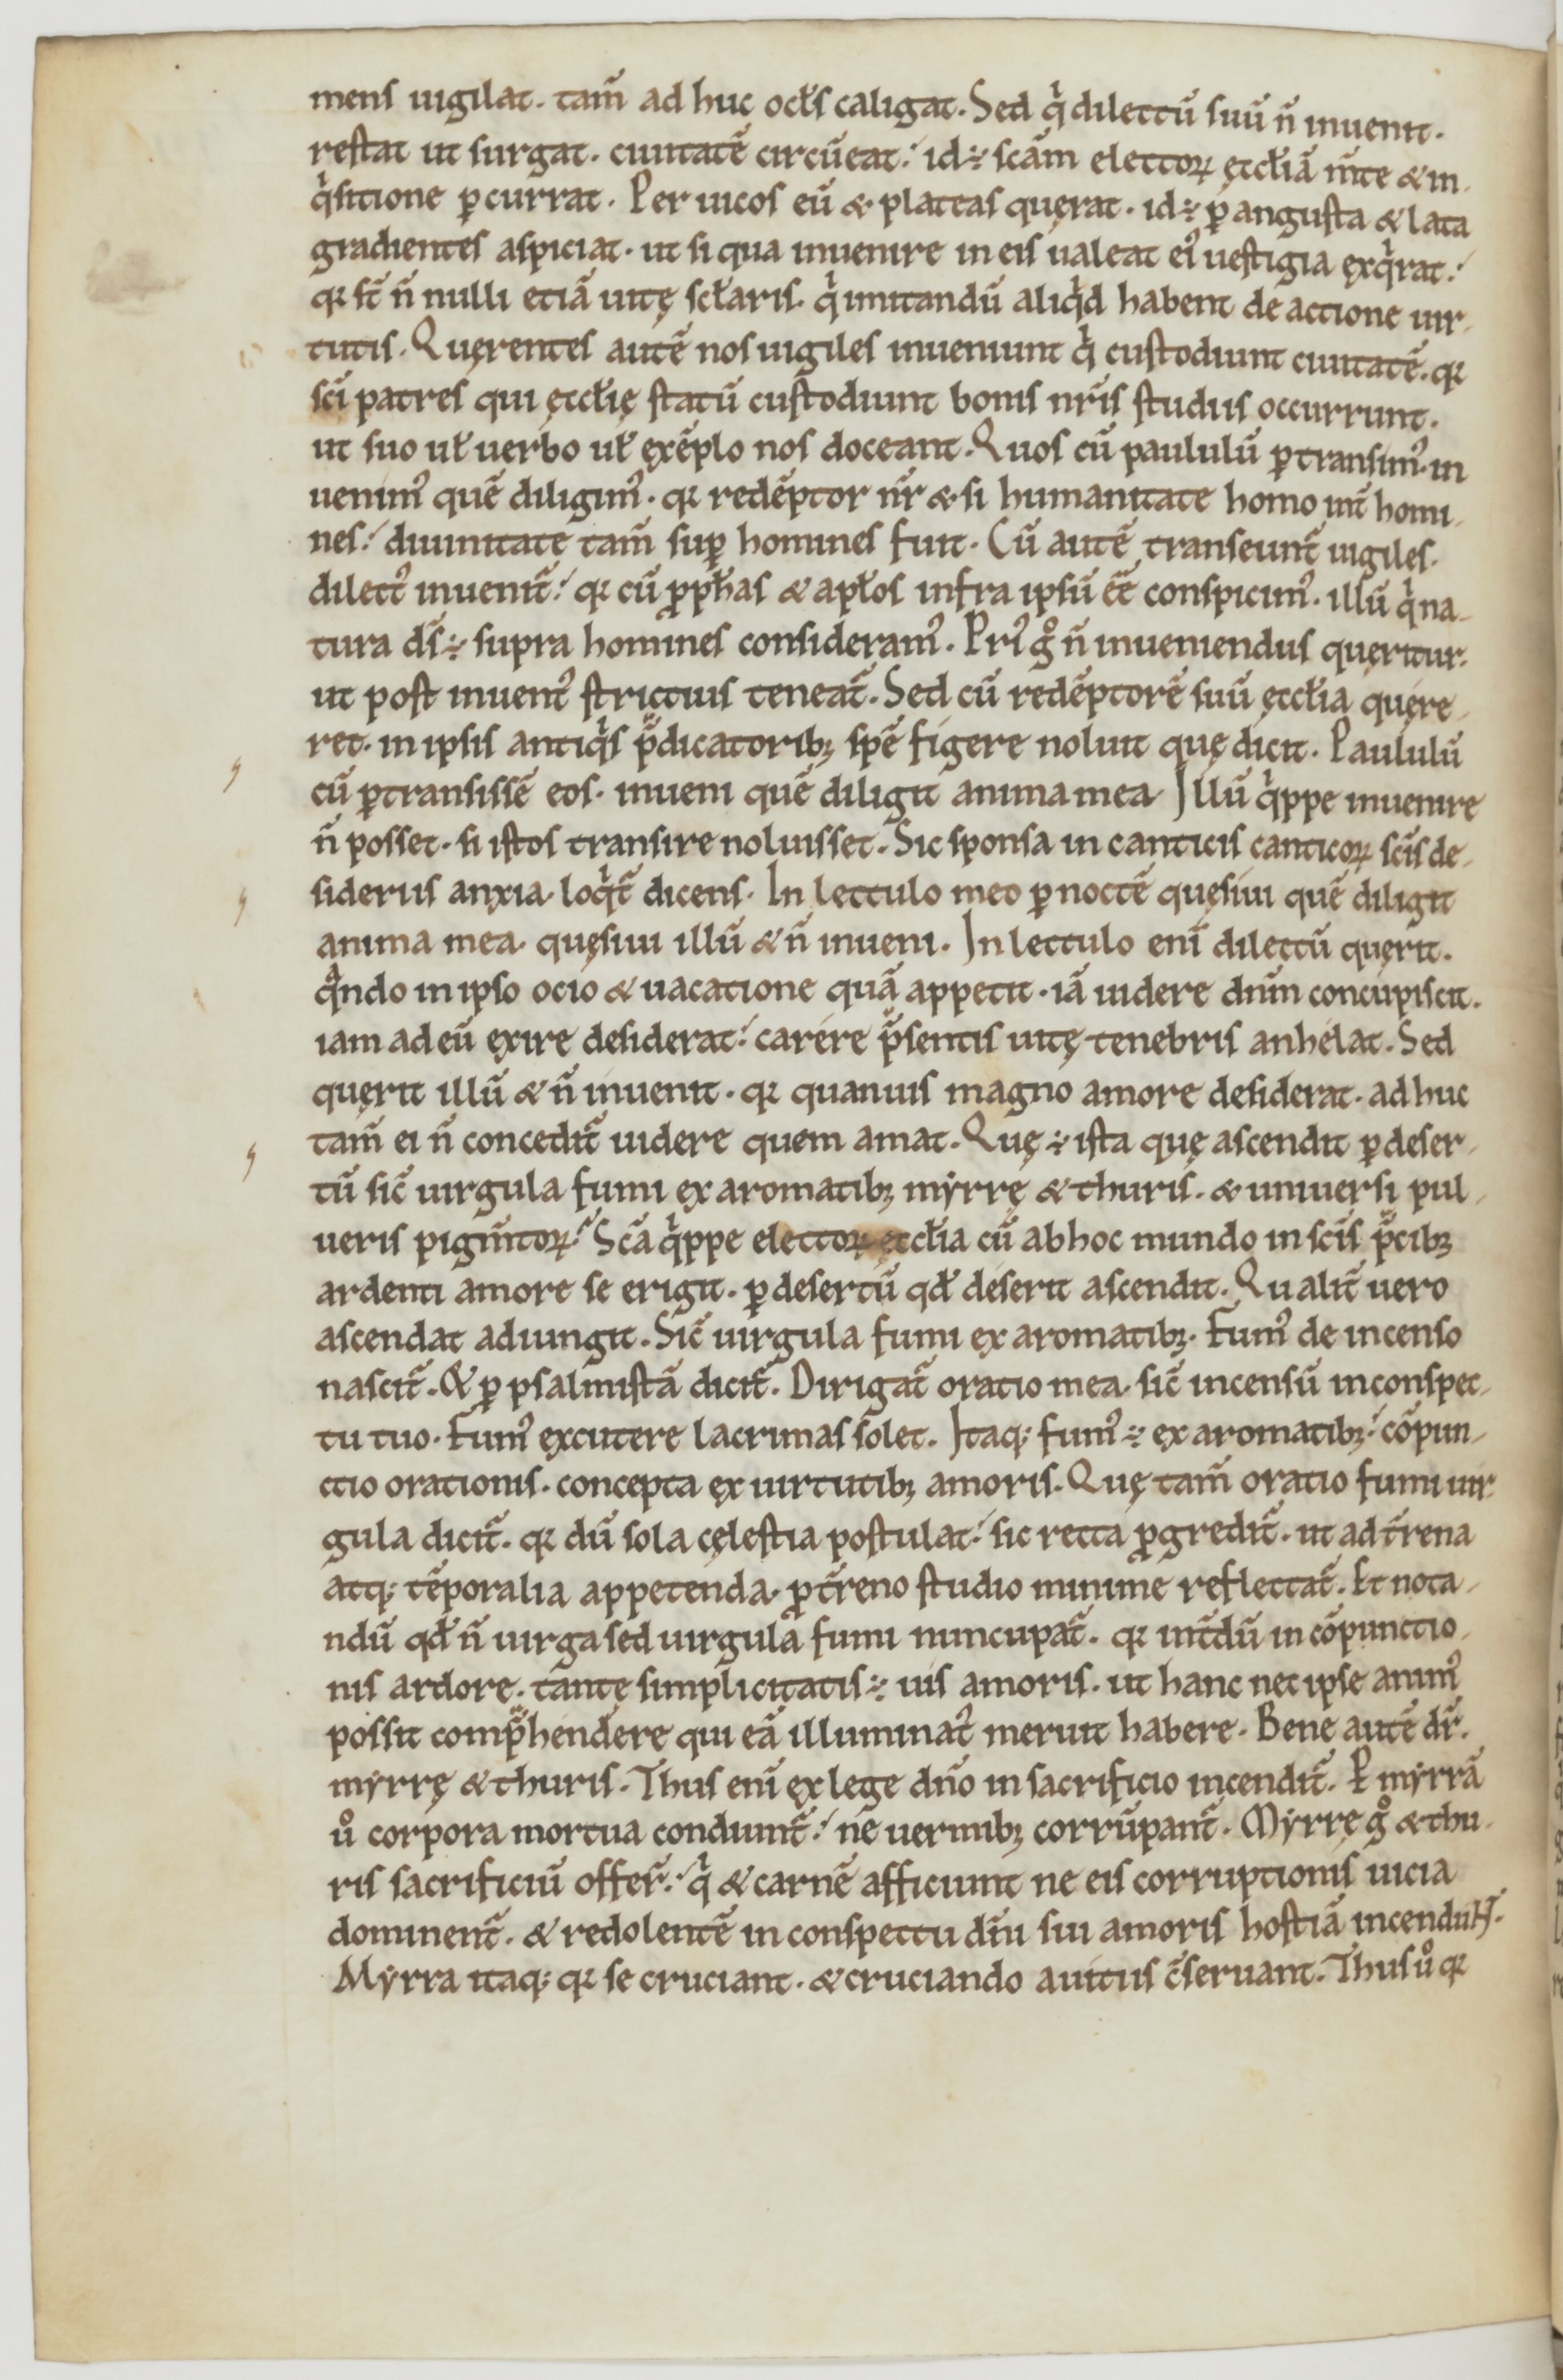 mens uigilat. tam̄ ad huc ocłs caligat. Sed qͥ dilectū suū n̄ inuenit.
restat ut surgat. ciuitatē circūeat. id ÷ scām electoꝝ ęccłiā m̄te & in
qͥsitione ꝑcurrat. Per uicos eū & plateas quęrat. id ÷ ꝑ angusta & lata
gradientes aspiciat. ut si qua inuenire in eis ualeat eiꝰ uestigia exqͥrat.
qꝛ st̄ n̄ nulli etiā uitę scłaris. qͥ imitandū aliqͥd habent de actione uir
tutis. Quęrentes autē nos uigiles inueniunt qͥ custodiunt ciuitatē. qꝛ
sc̄i patres qui ęccłię statū custodiunt bonis nr̄is studiis occurrunt.
ut suo uł uerbo uł exēplo nos doceant. Quos cū paululū ꝑtransimꝰ. in
uenimꝰ quē diligimꝰ. qꝛ redēptor nr̄ & si humanitate homo int̄ homi
nes. diuinitate tam̄ suꝑ homines fuit. Cū autē transeunt̄ uigiles.
dilectꝰ inuenit̄. qꝛ cū ꝓpħas & apłos infra ipsū ēē conspicimꝰ. illū qͥ na
tura ds̄ ÷ supra homines consideramꝰ. Priꝰ gͦ n̄ inueniendus quęritur.
ut post inuentꝰ strictius teneat̄. Sed cū redēptorē suū ęccłia quęre
ret. in ipsis antiqͥs p̄dicatoribꝫ spē figere noluit quę dicit. Paululū
cū ꝑtransissē eos. inueni quē diligit anima mea. Illū qͥppe inuenire
n̄ posset. si istos transire noluisset. Sic sponsa in canticis canticoꝝ sc̄is de
sideriis anxia. loqͥt̄ dicens. In lectulo meo ꝑ noctē quęsiui quē diligit
anima mea. quęsiui illū & n̄ inueni. In lectulo eni̅ dilectū quęrit.
qͣndo in ipso ocio & uacatione quā appetit. iā uidere dn̄m concupiscit.
iam ad eū exire desiderat. carere p̄sentis uitę tenebris anhelat. Sed
quęrit illū & n̄ inuenit. qꝛ quanuis magno amore desiderat. ad huc
tam̄ ei n̄ concedit̄ uidere quem amat. Quę ÷ ista quę ascendit ꝑ deser
tū sic̄ uirgula fumi ex aromatibꝫ myrrę & thuris. & uniuersi pul
ueris pigm̄toꝝ. Scā qͥppe electoꝝ ęccłia cū ab hoc mundo in sc̄is p̄cibꝫ
ardenti amore se erigit. ꝑ desertū qđ deserit ascendit. Qualit̄ uero
ascendat adiungit. Sic̄ uirgula fumi ex aromatibꝫ. Fumꝰ de incenso
nascit̄. & ꝑ psalmistā dicit̄. Dirigat̄ oratio mea. sic̄ incensū in conspec
tu tuo. Fumꝰ excutere lacrimas solet. Itaqꝫ fumꝰ ÷ ex aromatibꝫ. cōpun
ctio orationis. concepta ex uirtutibꝫ amoris. Quę tam̄ oratio fumi uir
gula dicit̄. qꝛ dū sola cęlestia postulat. sic recta ꝓgredit̄. ut ad t̄rena
atqꝫ tēporalia appetenda. ꝓ t̄reno studio minime reflectat̄. Et nota
ndū qđ n̄ uirga sed uirgula fumi nuncupat̄. qꝛ int̄dū in cōpunctio
nis ardore. tantę simplicitatis ÷ uis amoris. ut hanc nec ipse animꝰ
possit comp̄hendere qui eā illuminatꝰ meruit habere. Bene autē dr̄.
myrrę & thuris. Thus eni̅ ex lege dn̄o in sacrificio incendit̄. P myrrā
uͦ corpora mortua condiunt̄. ne uermibꝫ corrūpant̄. Myrrę gͦ & thu
ris sacrificiū offer̄. qͥ & carnē afficiunt ne eis corruptionis uicia
dominent̄. & redolentē in conspectu dn̄i sui amoris hostiā incendunt.
Myrra itaqꝫ qꝛ se cruciant. & cruciando a uitiis c̄seruant. Thus uͦ qꝛ